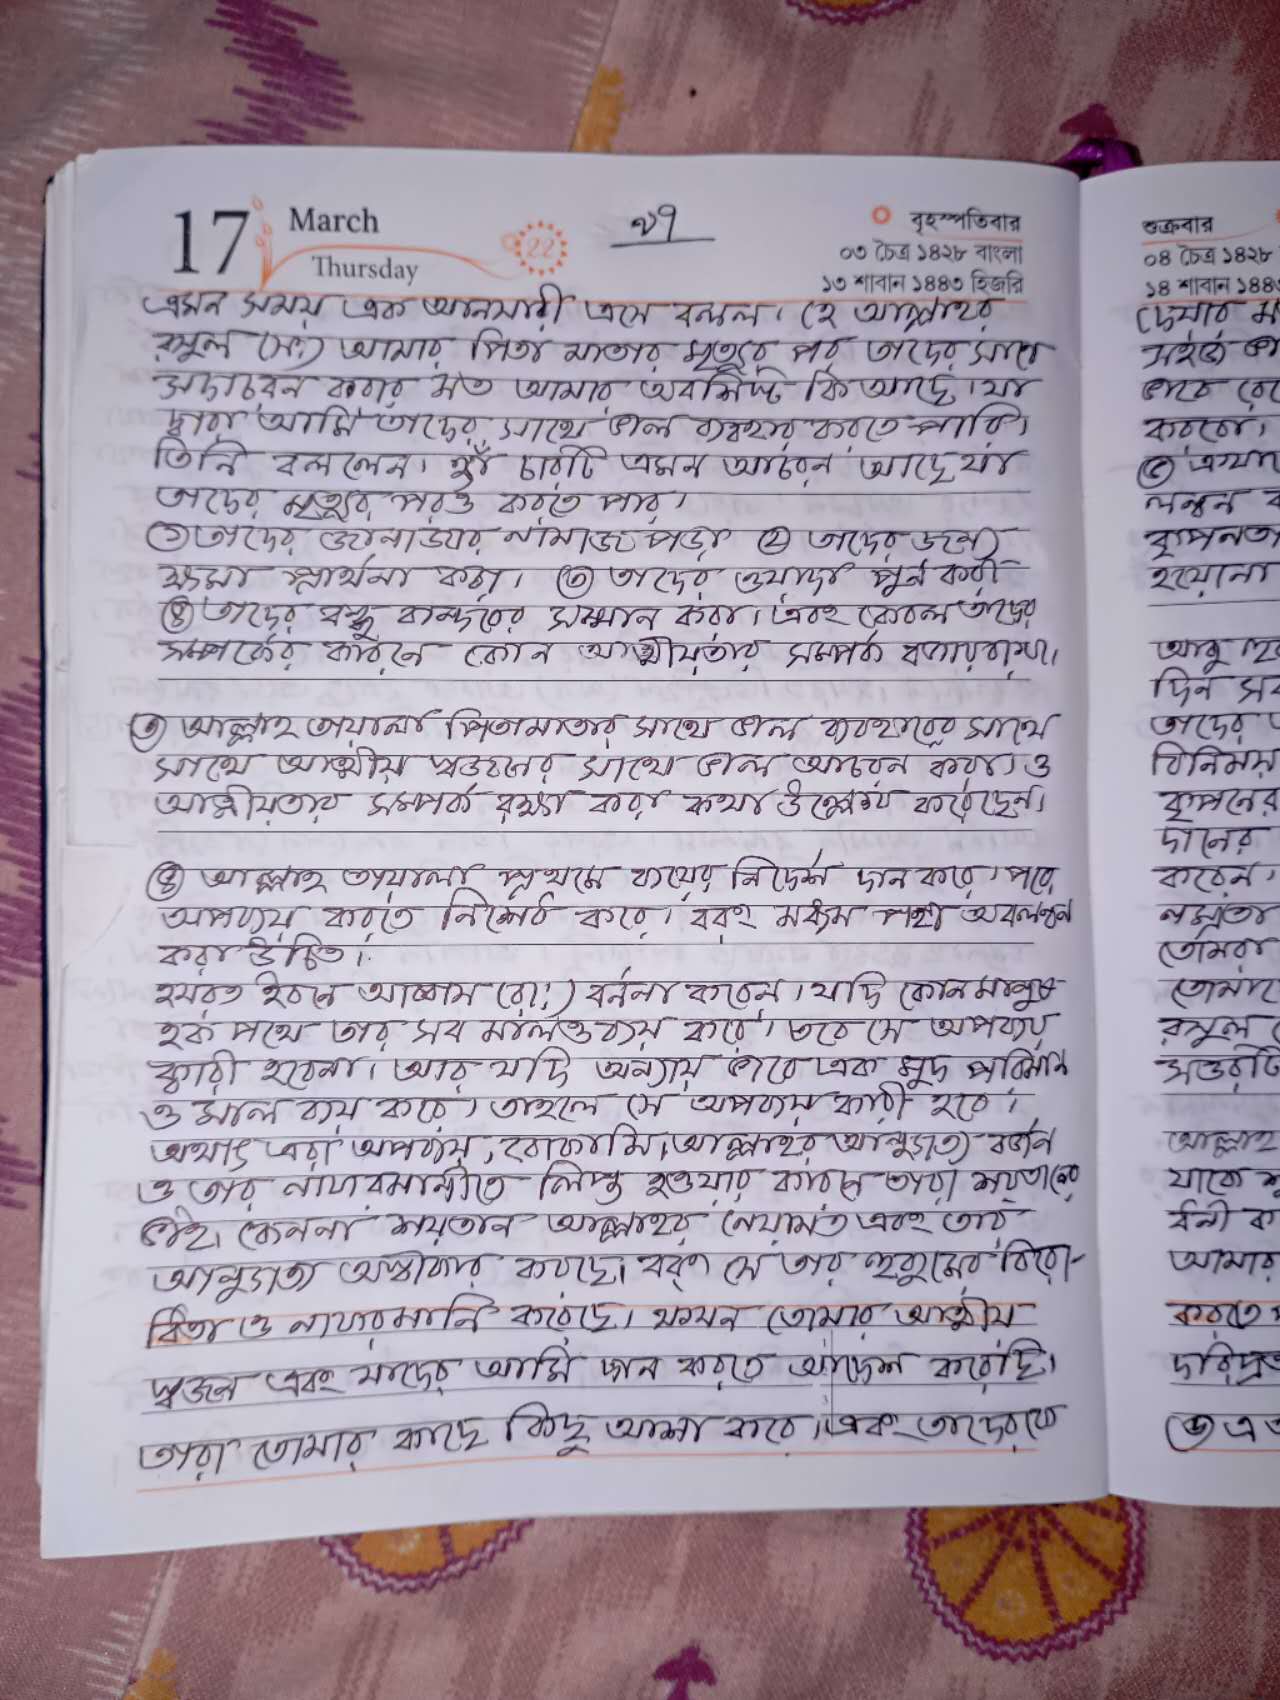 17 March
Thursday
22
২৭
বৃহস্পতিবার
০৩ চৈত্র ১৪২৮ বাংলা
১৩ শাবান ১৪৪৩ হিজরি
এমন সময় এক আনসারী এসে বলল। হে আল্লাহর
রসুল (সঃ) আমার পিতা মাতার মৃত্যুর পর তাদের সাথে
সদাচরন করার মত আমার অবশিষ্ট কি আছে। যা
দ্বারা আমি তাদের সাথে ভাল ব্যবহার করতে পারি।
তিনি বললেন। হ্যাঁ চারটি এমন আচরন আছে যা
তাদের মৃত্যুর পরও করতে পার।
① তাদের জানাজার নামাজ পড়া ② তাদের জন্য
ক্ষমা প্রার্থনা করা। ③ তাদের ওয়াদা পুর্ন করা
④ তাদের বন্ধু বান্দবের সম্মান করা। এবং কেবল তাদের
সম্পর্কের কারনে কোন আত্মীয়তার সম্পর্ক বজায় রাখা।
③ আল্লাহ তায়ালা পিতামাতার সাথে ভাল ব্যবহারের সাথে
সাথে আত্মীয় স্বজনের সাথে ভাল আচরন করা। ও
আত্মীয়তার সম্পর্ক রক্ষা করা কথা উল্লেখ করেছেন।
④ আল্লাহ তায়ালা প্রথমে ব্যয়ের নির্দেশ দান করে। পরে
অপব্যয় করতে নিষেধ করে। বরং মধ্যম পন্থা অবলম্বন
করা উচিত।
হযরত ইবনে আব্বাস (রাঃ) বর্ননা করেন। যদি কোন মানুষ
হক পথে তার সব মালও ব্যয় করে। তবে সে অপব্যয়
কারী হবেনা। আর যদি অন্যায় ভাবে এক মুদ পরিমান
ও মাল ব্যয় করে। তাহলে সে অপব্যয় কারী হবে।
অথাৎ এরা অপব্যয়, বোকামি। আল্লাহর আনুগত্য বর্জন
ও তার নাফরমানীতে লিপ্ত হওয়ার কারনে তারা শয়তানের
ভাই। কেননা শয়তান আল্লাহর নেয়ামত এবং তার
আনুগত্য অস্বীকার করছে। বরং সে তার হুকুমের বিরো-
ধিতা ও নাফরমানি করেছে। যখন তোমার আত্মীয়
স্বজন এবং যাদের আমি দান করতে আদেশ করেছি।
তারা তোমার কাছে কিছু আশা করে। এবং তাদেরকে
শুক্রবার
০৪ চৈত্র ১৪২৮
১৪ শাবান ১৪৪৩
ভাবে
করবো।
⑤
হয়োনা
দিন সব
তাদের
বিনিময়
কৃপনের
দানের
করেন।
নম্রতা
তোমরা
রসুল
সত্তরটি
আল্লাহ
যাকে
আমার
করতে